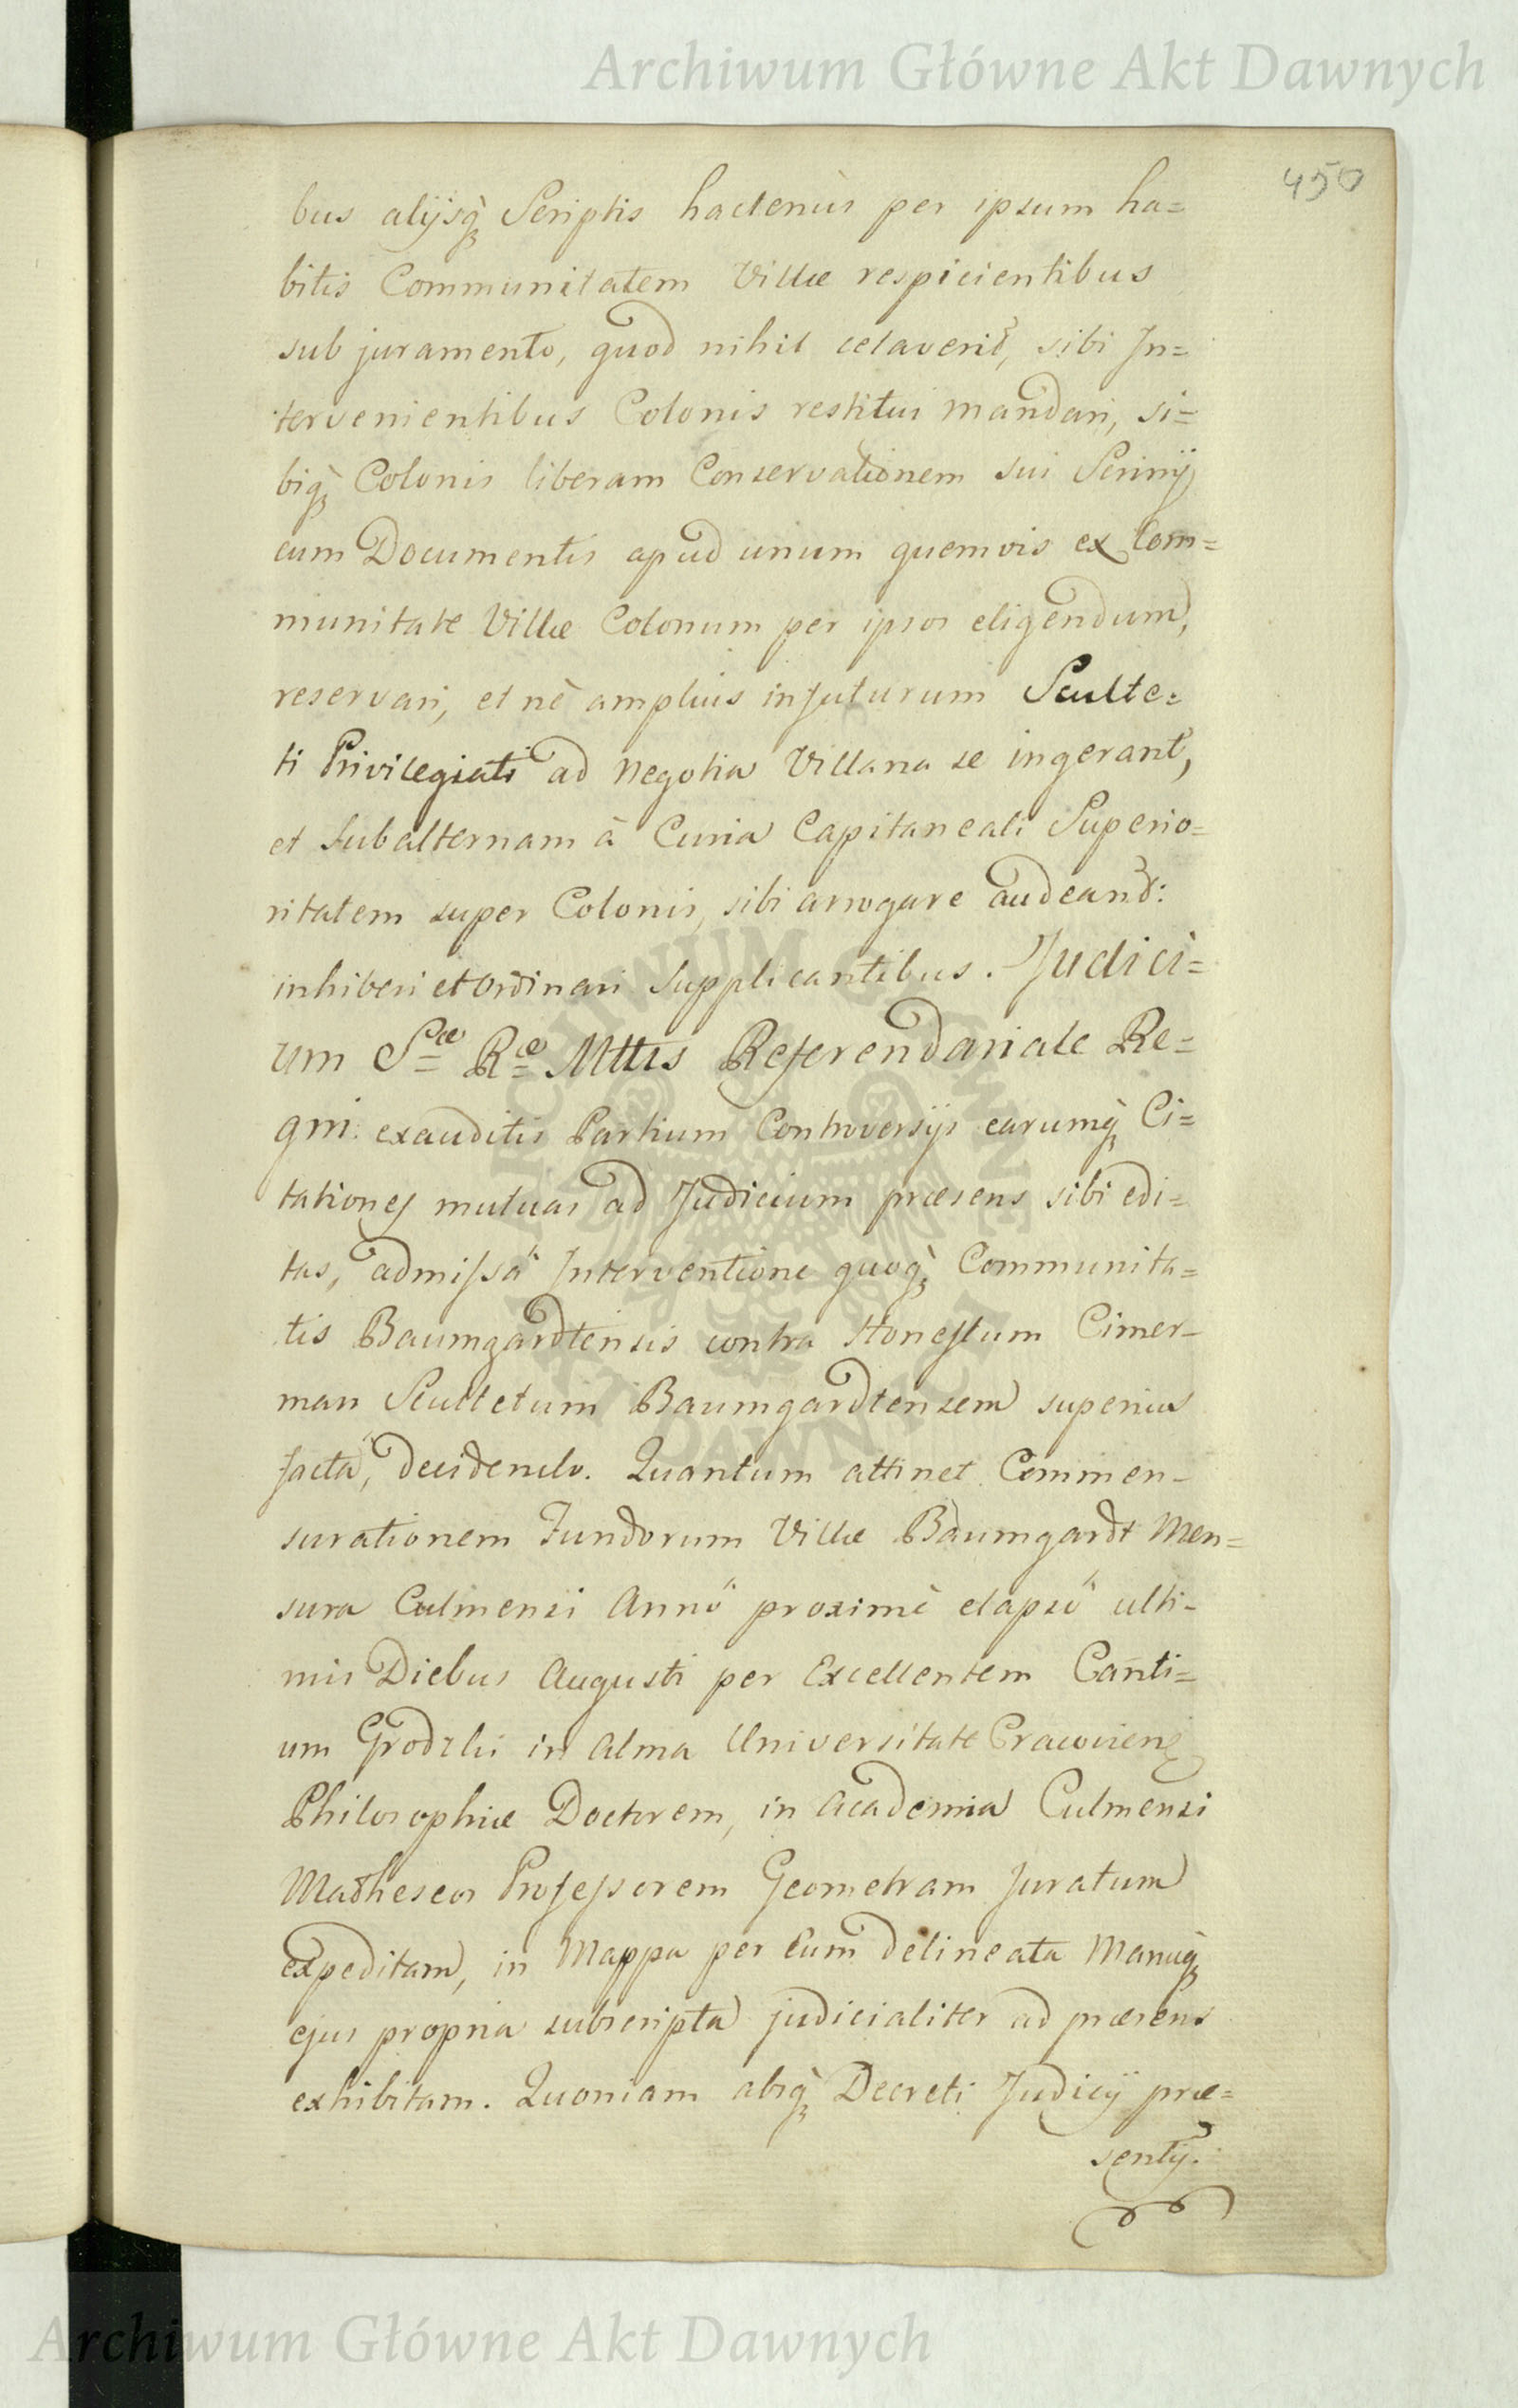 Archiwum Główne Akt Dawnych
450
bus alijsq̀ Scriptis hactenùs per ipsum ha=
bitis Communitatem Villæ respicientibus
sub juramento, quod nihil celaverit, sibi In=
tervenientibus Colonis restitui mandari, si=
biq̀ Colonis liberam Conservationem sui Scrinij
cum Documentis apud unum quemvis ex Com=
munitate Villæ Colonum per ipsos eligendum,
reservari, et nè amplius in futurum Sculte=
ti Privilegiati ad Negotia Villana se ingerant,
et subalternam à Curia Capitaneali Superio=
ritatem super Colonis, sibi arrogare audeant:
inhiberi et ordinari Supplicantibus. Judici=
um Sæ Ræ Mttis Referendariale Re=
gni. exauditis Partium Controversijs earumq̀ Ci=
tationes mutuas ad Judicium præsens sibi edi=
tas, admissâ Interventione quoq̀ Communita=
tis Baumgardtensis contra Honestum Cimer=
man Scultetum Baumgardtensem superius
factâ, decidendo. Quantum attinet Commen=
surationem Fundorum Villæ Baumgardt Men=
sura Culmensi Annô proximè elapsô ulti=
mis Diebus Augusti per Excellentem Canti=
um Grodzki in Alma Universitate Cracoviens
Philosophiæ Doctorem, in Academia Culmensi
Matheseos Professorem Geometram Juratum
expeditam, in Mappa per Eum delineata Manuq̀
ejus propria subscripta judicialiter ad præsens
exhibitam. Quoniam absq̀ Decreti Judicij præ=
sentis.
Archiwum Główne Akt Dawnych